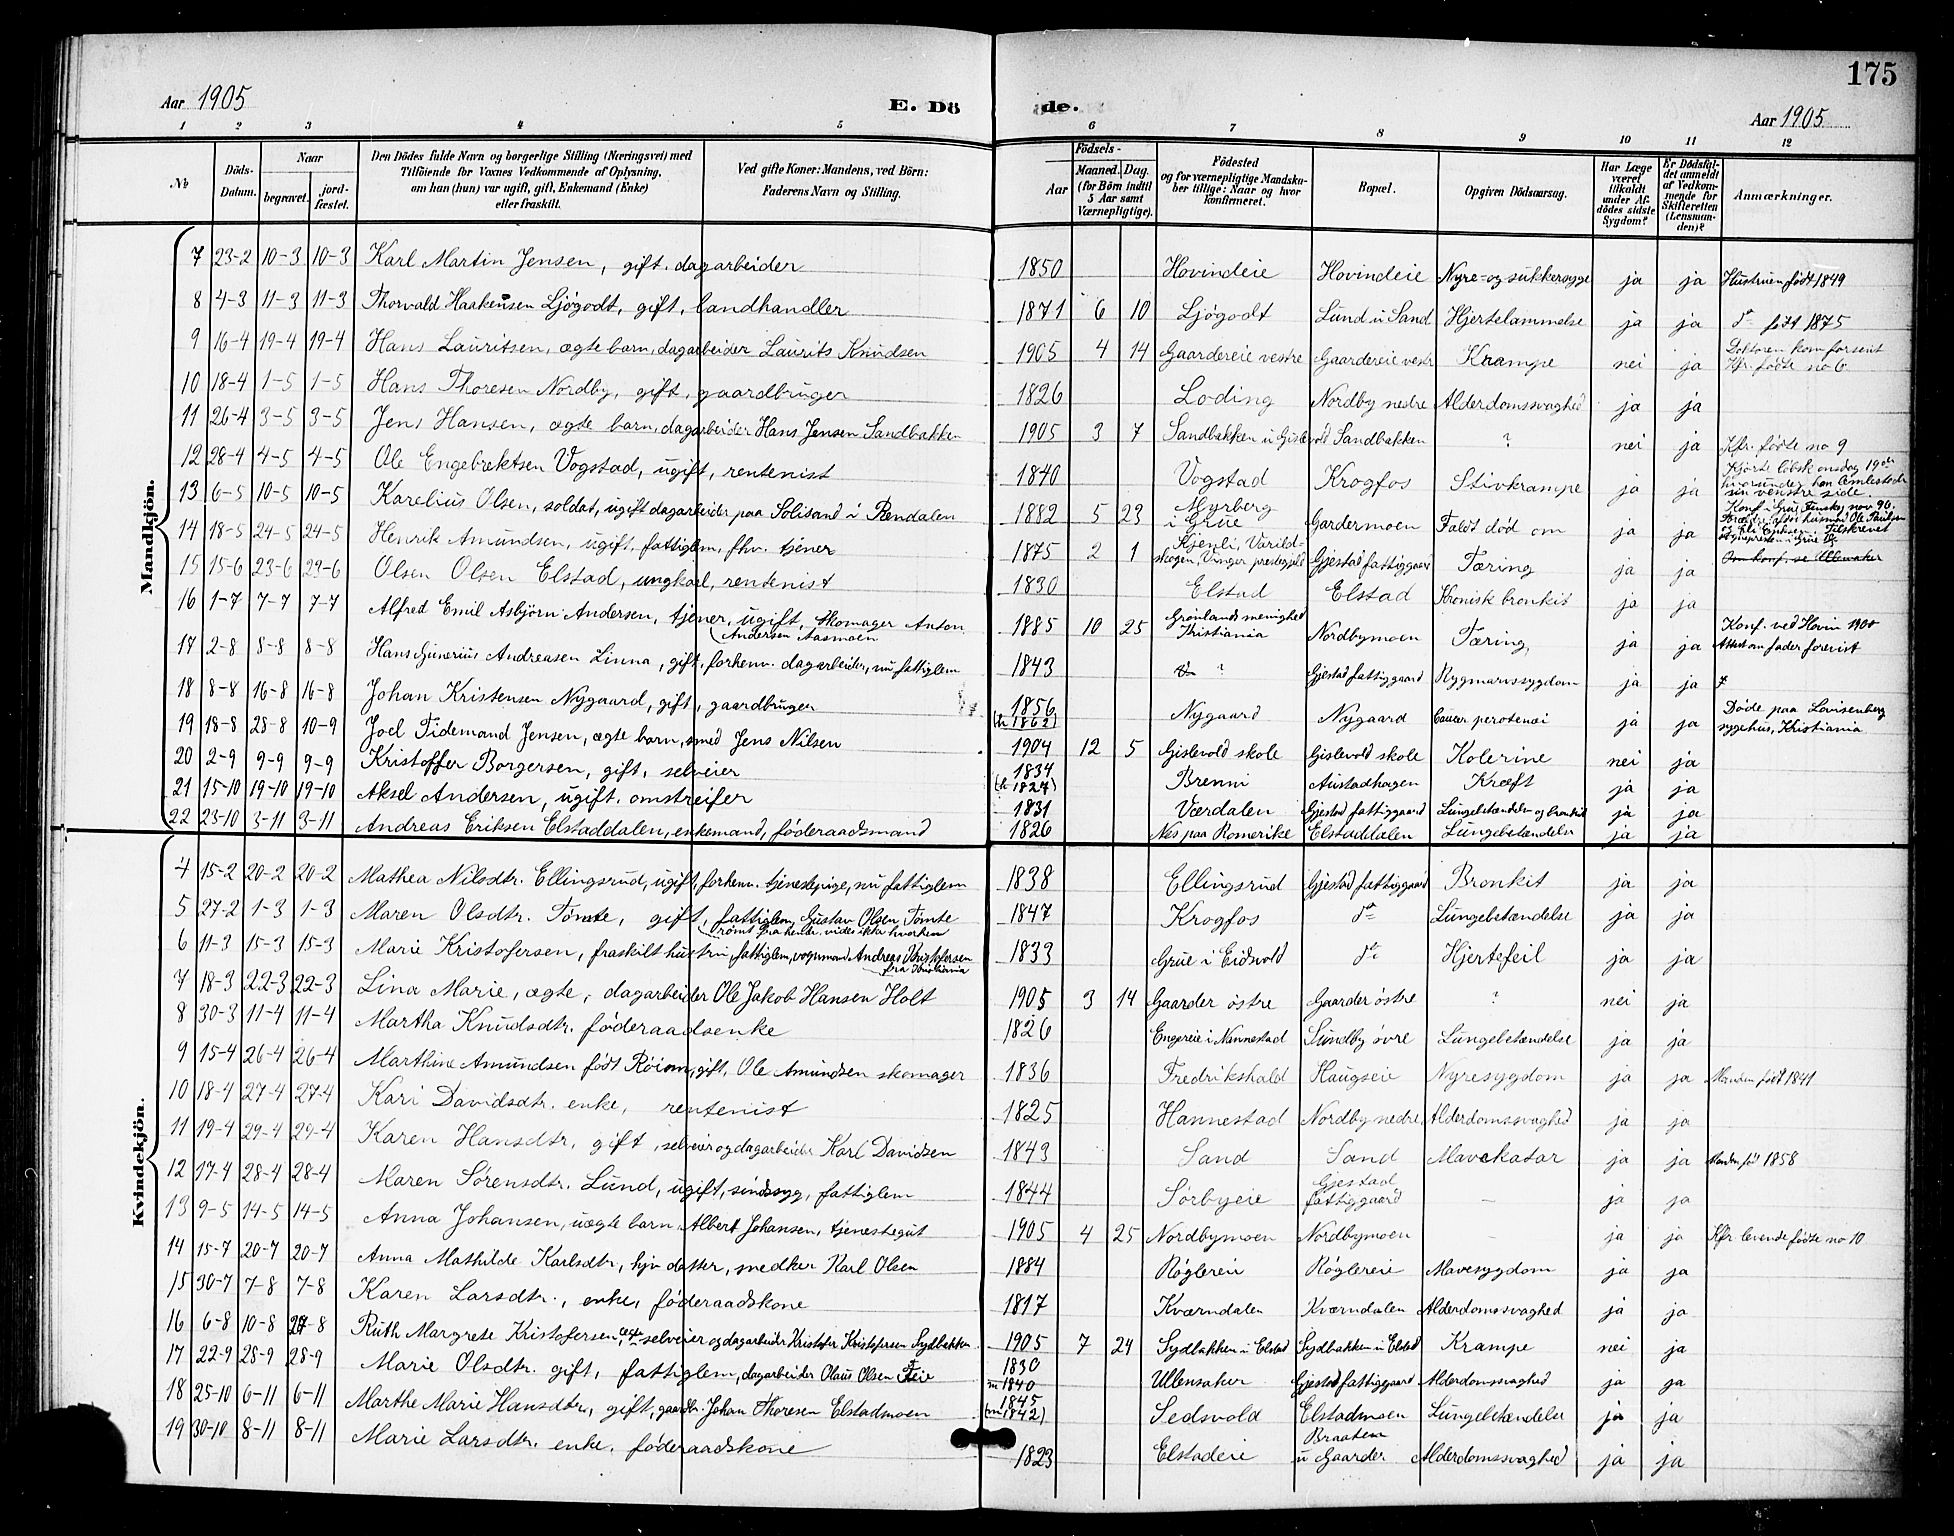 175
Aar 1905 E. Dö de. Aar 1905
1 2 3 4 5 6 7 8 9 10 11 12
No
Döds-Datum.
Naar begravet. jord-fæstet.
Den Dödes fulde Navn og borgerlige Stilling (Næringsvei) med Tilföiende for Voxnes Vedkommende af Oplysning, om han (hun) var ugift, gift, Enkemand (Enke) eller fraskilt.
Ved gifte Koner: Mandens, ved Börn: Faderens Navn og Stilling.
Födsels- Aar Maaned. Dag. (for Börn indtil 5 Aar samt Værnepligtige).
Födested og for værnepligtige Mandskaber tillige: Naar og hvor konfirmeret.
Bopæl.
Opgiven Dödsaarsag.
Har Læge været tilkaldt under Afdödes sidste Sygdom?
Er Dödsfaldet anmeldt af Vedkommende for Skifteretten (Lensmanden)?
Anmærkninger.
Mandkjön.
7 23-2 10-3 10-3 Karl Martin Jensen, gift, dagarbeider 1850 Hovindeie Hovindeie Nyre- og sukkersyge ja ja Hustruen født 1849
8 4-3 11-3 11-3 Thorvald Haakensen Ljøgodt, gift, landhandler 1871 6 10 Ljøgodt Lund u Sand Hjertelammelse ja ja do født 1875
9 16-4 19-4 19-4 Hans Lauritsen, ægte barn, dagarbeider Laurits Knudsen 1905 4 14 Gaardereie vestre Gaardereie vestr Krampe nei ja Doktoren kom forsent Kfr. fødte no 6
10 18-4 1-5 1-5 Hans Thoresen Nordby, gift, gaardbruger 1826 Loding Nordby nedre Alderdomssvaghed ja ja
11 26-4 3-5 3-5 Jens Hansen, ægte barn, dagarbeider Hans Jensen Sandbakken 1905 3 7 Sandbakken u Gislevold Sandbakken ? nei ja Kfr. fødte no 9
12 28-4 4-5 4-5 Ole Engebrektsen Vogstad, ugift, rentenist 1840 Vogstad Krogfos Stivkrampe ja ja Kjørte løbsk onsdag 19de hvorunder han sin venstre side.
13 6-5 10-5 10-5 Karelius Olsen, soldat, ugift dagarbeider paa Solisand i Rendalen 1882 5 23 Myrberg i Grue Gardermoen Faldt død om ja ja Konf. i Grue Finskog nov 96,
14 18-5 24-5 24-5 Henrik Amundsen, ugift, fattiglem, fhv. tjener 1875 2 1 Kjenli, Varildskogen, Vinger prestegjeld Gjestad fattiggaard Tæring ja ja Om konf. se Ullensaker
15 15-6 23-6 23-6 Olsen Olsen Elstad, ungkarl, rentenist 1830 Elstad Elstad Kronisk bronkit ja ja
16 1-7 7-7 7-7 Alfred Emil Asbjørn Andersen, tjener, ugift, Skomager Anton Andersen Aasmoen 1885 10 25 Grønlands menighed Kristiania Nordbymoen Tæring ja ja Konf. ved Hovin 1900 Attest om fader forevist
17 2-8 8-8 8-8 Hans Gunerius Andreasen Linna, gift, forhenv. dagarbeider, nu fattiglem 1843 ? Gjestad fattiggaard Rygmarvssygdom ja ja
18 8-8 16-8 16-8 Johan Kristensen Nygaard, gift, gaardbruger 1856 (h 1862) Nygaard Nygaard Cancer peritonei ja ja Døde paa Lovisenberg sygehus, Kristiania
19 18-8 25-8 10-9 Joel Tidemand Jensen, ægte barn, smed Jens Nilsen 1904 12 5 Gislevold skole Gislevold skole Kolerine nei ja
20 2-9 9-9 9-9 Kristoffer Borgersen, gift, selveier 1834 (h 1827) Brenni Austadhagen Kræft ja ja
21 15-10 19-10 19-10 Aksel Andersen, ugift, omstreifer 1831 Værdalen Gjestad fattiggaard Lungebetændelse og bronkit ja ja
22 23-10 3-11 3-11 Andreas Eriksen Elstaddalen, enkemand, føderaadsmand 1826 Nes paa Romerike Elstaddalen Lungebetændelse ja ja
Kvindekjön.
4 15-2 20-2 20-2 Mathea Nilsdtr. Ellingsrud, ugift, forhenv. tjenestepige, nu fattiglem 1838 Ellingsrud Gjestad fattiggaard Bronkit ja ja
5 27-2 1-3 1-3 Maren Olsdtr. Tømte, gift, fattiglem, Gustav Olsen Tømte (rømt fra hende, vides ikke hvorhen 1847 Krogfos do Lungebetændelse ja ja
6 11-3 15-3 15-3 Marie Kristofersen, fraskilt hustru, fattiglem, vognmand Andreas Kristofersen fra Kristiania 1833 Grue i Eidsvold do Hjertefeil ja ja
7 18-3 22-3 22-3 Lina Marie, ægte, dagarbeider Ole Jakob Hansen Holt 1905 3 14 Gaarder østre Gaarder østre ? nei ja
8 30-3 11-4 11-4 Martha Knudsdtr. føderaadsenke 1826 Engereie i Nannestad Sundby øvre Lungebetændelse ja ja
9 15-4 26-4 26-4 Marthine Amundsen født Røiom, gift, Ole Amundsen skomager 1836 Fredrikshald Haugseie Nyresygdom ja ja Manden født 1841
10 18-4 27-4 27-4 Kari Davidsdtr. enke, rentenist 1825 Hannestad Nordby nedre Alderdomssvaghed ja ja
11 19-4 29-4 29-4 Karen Hansdtr. gift, selveier og dagarbeider Karl Davidsen 1843 Sand Sand Mavekatar ja ja Manden født 1858
12 17-4 28-4 28-4 Maren Sørensdtr. Lund, ugift, sindssyg, fattiglem 1844 Sørbyeie Gjestad fattiggaard – ja ja
13 9-5 14-5 14-5 Anna Johansen, uægte barn, Albert Johansen, tjenestegut 1905 4 25 Nordbymoen Nordbymoen – ja ja Kfr levende fødte no 10
14 15-7 20-7 20-7 Anna Mathilde Karlsdtr, hjv datter, snedker Karl Olsen 1884 Røglereie Røglereie Mavesygdom ja ja
15 30-7 7-8 7-8 Karen Larsdtr., enke, føderaadskone 1817 Kværndalen Kværndalen Alderdomssvaghed ja ja
16 6-8 10-8 27-8 Ruth Margrete Kristofersen, ægte, selveier og dagarbeider Kristofer Kristofersen Sydbakken 1905 7 24 Sydbakken u Elstad Sydbakken u Elstad Krampe nei ja
17 22-9 28-9 28-9 Marie Olsdtr. gift, fattiglem, dagarbeider Olaus Olsen Feie 1830 m 1840 Ullensaker Gjestad fattiggaard Alderdomssvaghed ja ja
18 25-10 6-11 6-11 Marthe Marie Hansdtr, gift, gaardbr. Johan Thoresen Elstadmoen 1845 (m 1842) Sedsvold Elstadmoen Lungebetændelse ja ja
19 30-10 8-11 8-11 Marie Larsdtr. enke, føderaadskone 1823 Elstadeie Braaten u Gaarder Alderdomssvaghed ja ja